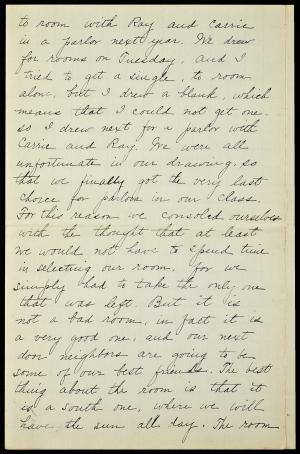 to room with Ray and Carrie
in a parlor next year. We drew
for rooms on Tuesday, and I
tried to get a single, to room
alone, but I drew a blank, which
means that I could not get one.
so I drew next for a parlor with
Carrie and Ray. We were all
unfortunate in our drawing, so
that we finally got the very last
choice for parlors in our class.
For this reason we consoled ourselves
with the thought that at least
we would not have to spend time
in selecting our room, for we
simply had to take the only one
that was left. But it is
not a bad room, in fact it is
a very good one, and our next
door neighbors are going to be
some of our best friends. The best
thing about the room is that it
is a south one, where we will
have the sun all day. The room